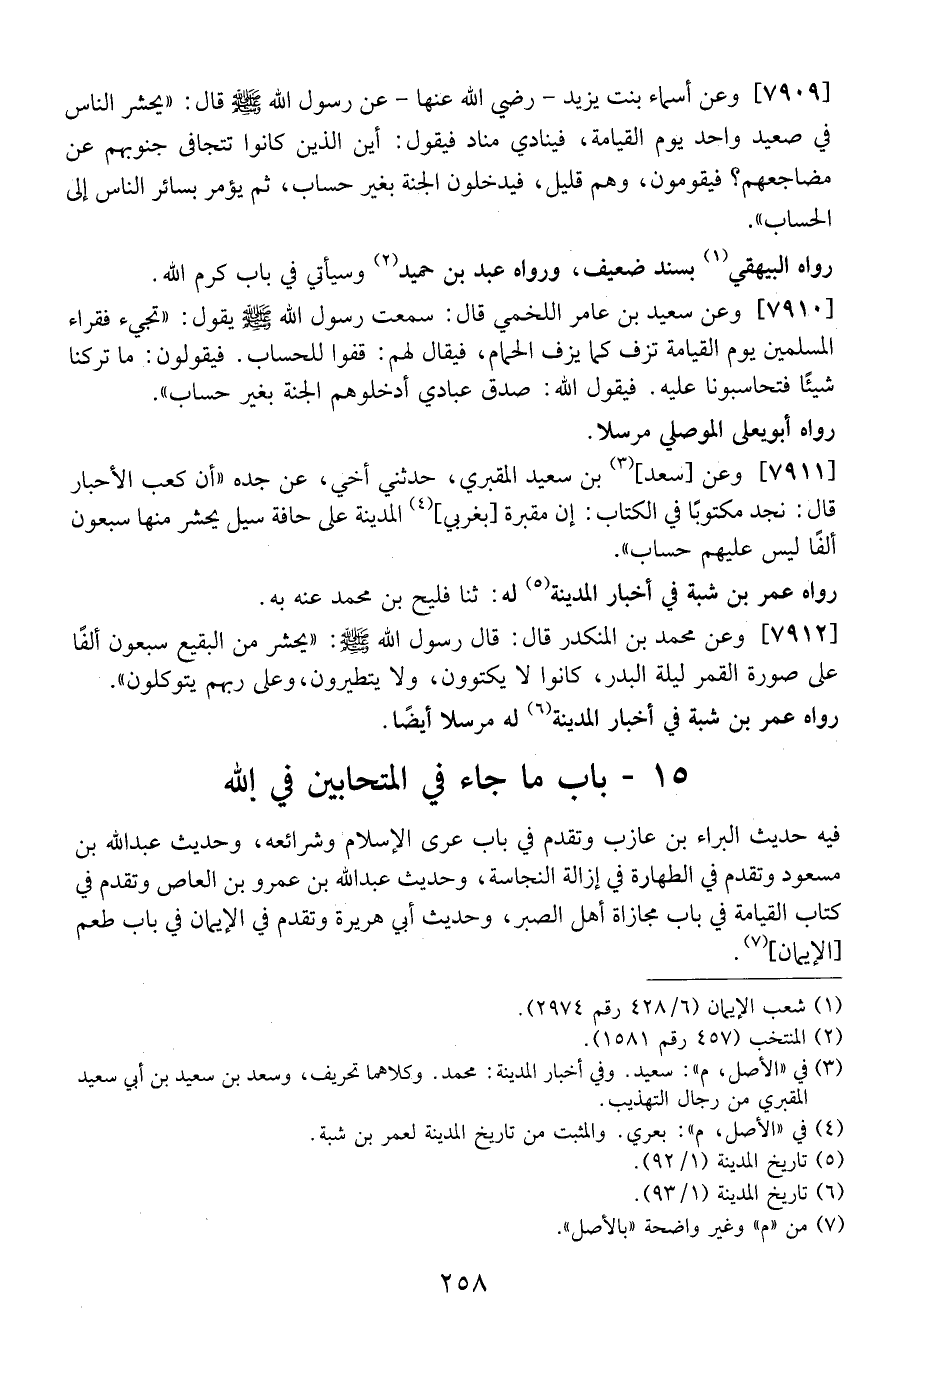 [٧٩٠٩] وعن أسماء بنت يزيد - رضي الله عنها - عن رسول الله ﷺ قال: «يحشر الناس
في صعيد واحد يوم القيامة، فينادي مناد فيقول: أين الذين كانوا تتجافى جنوبهم عن
مضاجعهم؟ فيقومون، وهم قليل، فيدخلون الجنة بغير حساب، ثم يؤمر بسائر الناس إلى
الحساب».
رواه البيهقي(١) بسند ضعيف، ورواه عبد بن حميد(٢) وسيأتي في باب كرم الله.
[٧٩١٠] وعن سعيد بن عامر اللخمي قال: سمعت رسول الله ﷺ يقول: «تجيء فقراء
المسلمين يوم القيامة تزف كما يزف الحمام، فيقال لهم: قفوا للحساب. فيقولون: ما تركنا
شيئًا فتحاسبونا عليه. فيقول الله: صدق عبادي أدخلوهم الجنة بغير حساب».
رواه أبويعلى الموصلي مرسلا.
[٧٩١١] وعن [سعد](٣) بن سعيد المقبري، حدثني أخي، عن جده «أن كعب الأحبار
قال: نجد مكتوبًا في الكتاب: إن مقبرة [بغربي](٤) المدينة على حافة سيل يحشر منها سبعون
ألفًا ليس عليهم حساب».
رواه عمر بن شبة في أخبار المدينة(٥) له: ثنا فليح بن محمد عنه به.
[٧٩١٢] وعن محمد بن المنكدر قال: قال رسول الله ﷺ: «يحشر من البقيع سبعون ألفًا
على صورة القمر ليلة البدر، كانوا لا يكتوون، ولا يتطيرون، وعلى ربهم يتوكلون».
رواه عمر بن شبة في أخبار المدينة(٦) له مرسلا أيضًا.
١٥ - باب ما جاء في المتحابين في الله
فيه حديث البراء بن عازب وتقدم في باب عرى الإسلام وشرائعه، وحديث عبدالله بن
مسعود وتقدم في الطهارة في إزالة النجاسة، وحديث عبدالله بن عمرو بن العاص وتقدم في
كتاب القيامة في باب مجازاة أهل الصبر، وحديث أبي هريرة وتقدم في الإيمان في باب طعم
[الإيمان](٧).
(١) شعب الإيمان (٦/ ٤٢٨ رقم ٢٩٧٤).
(٢) المنتخب (٤٥٧ رقم ١٥٨١).
(٣) في «الأصل، م»: سعيد. وفي أخبار المدينة: محمد. وكلاهما تحريف، وسعد بن سعيد بن أبي سعيد
المقبري من رجال التهذيب.
(٤) في «الأصل، م»: بعري. والمثبت من تاريخ المدينة لعمر بن شبة.
(٥) تاريخ المدينة (١/ ٩٢).
(٦) تاريخ المدينة (١/ ٩٣).
(٧) من «م» وغير واضحة «بالأصل».
٢٥٨